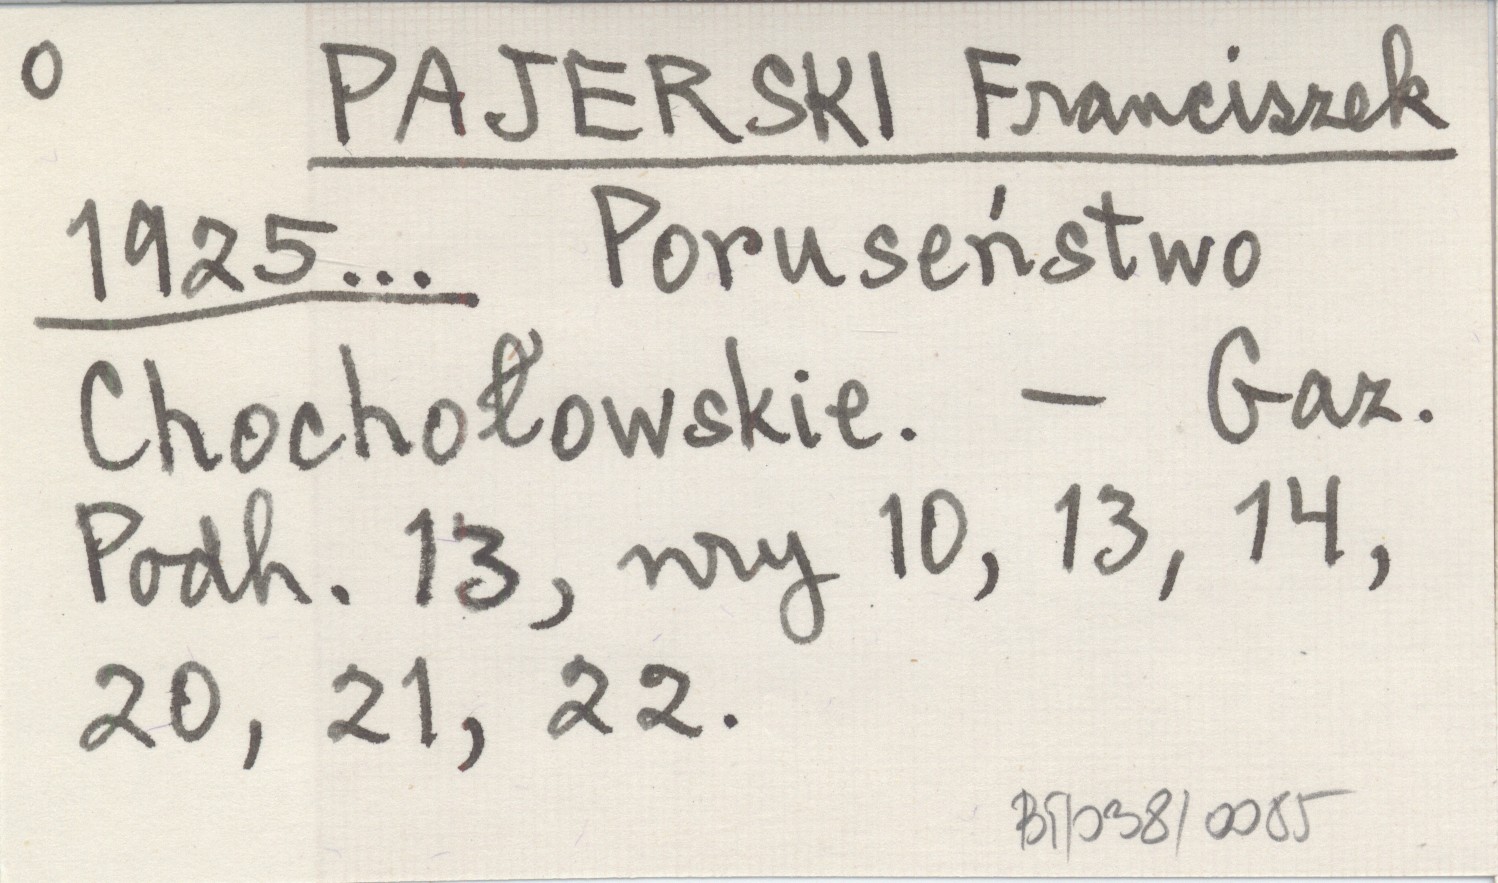 0 PAJERSKI Franciszek
1925... Poruseństwo
Chochołowskie. — Gaz.
Podh. 13, nry 10, 13, 14,
20, 21, 22.
BT/038/0085